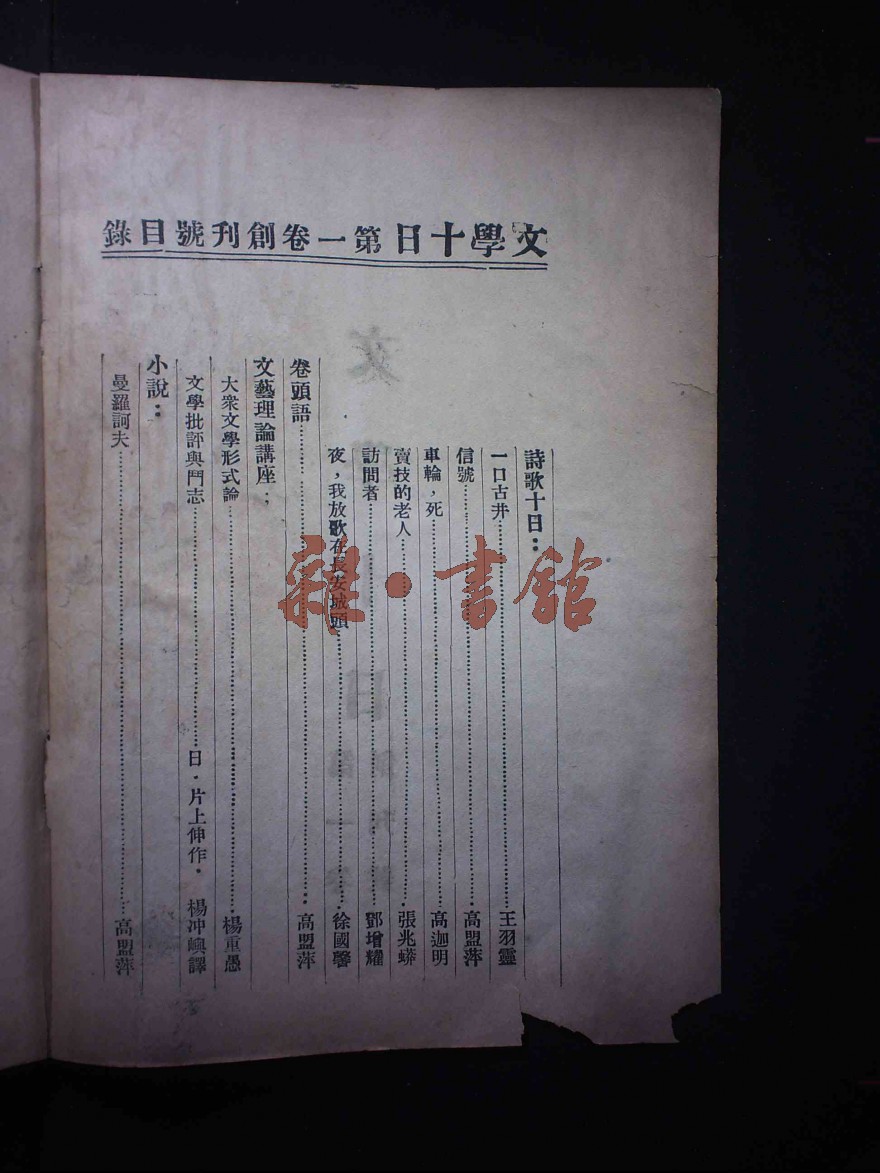 文學十日第一卷創刊號目錄
詩歌十日：
一口古井……王羽靈
信號……高盟萍
車輪，死……高迦明
賣技的老人……張兆蟒
訪問者……鄧增耀
夜，我放歌在長安城頭……徐國馨
卷頭語……高盟萍
文藝理論講座：
大衆文學形式論……楊重愚
文學批評與鬥志……日·片上伸作·楊冲嶼譯
小說：
曼羅訶夫……高盟萍
雜·書館